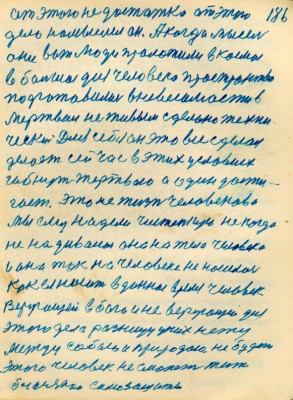 от этого недостатка от этого 186
дело помысли он. А когда мысли
они вот люди проложили в Космос
в больших для человека пространство
подготовились в невесомости в
мертвом не живым сделано техни
чески Для себя он это все сделал
делает сейчас в этих условиях
гибнут жертвою а один дости-
гает. Это не жизнь человекова
мы ему надели чистотную не когда
не надивались она на тело человека
и она так на человеке не носилась
как ее носит в данное время человек
Верующей в бога и не верующей для
этого дела разницы у них нету
между собою и природою не будет
этого человек не сможет жить
бы у него самозащиты